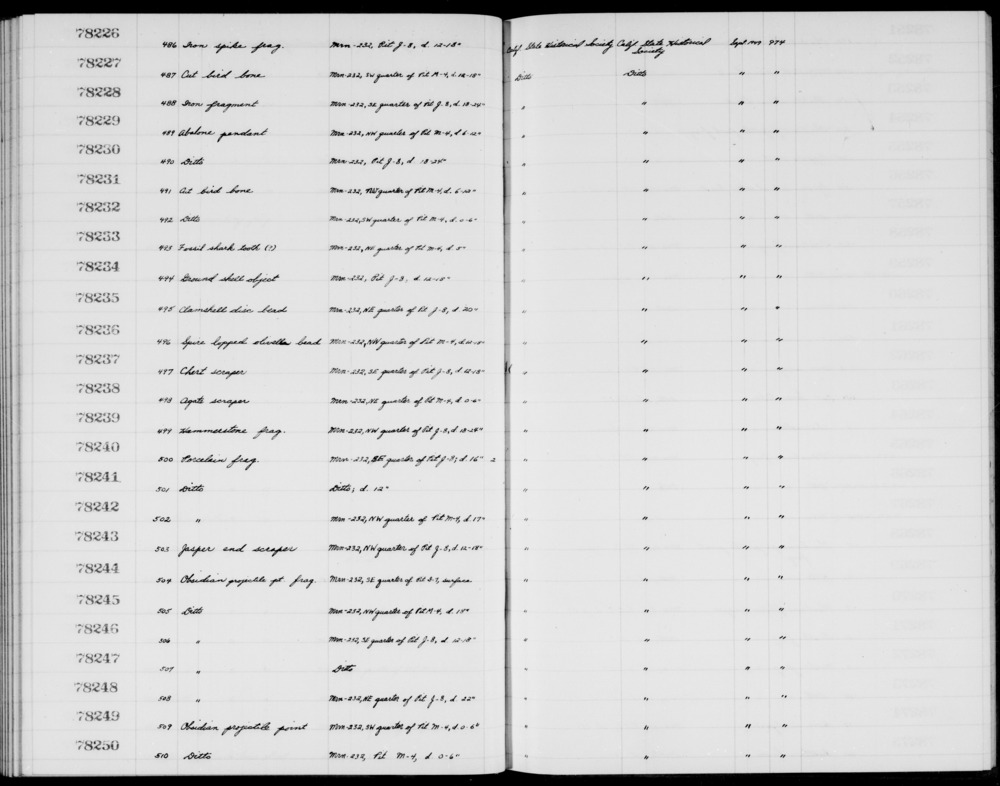 78226 486 Iron spike frag. Mrn-232, Pit J-8, d. 12-18" Calif. State Historical Society Calif. State Historical Society Sept 1949 974
78227 487 Cut bird bone Mrn-232, SW quarter of Pit M-4, d. 12-18" Ditto Ditto " "
78228 488 Iron fragment Mrn-232, SE quarter of Pit J-8, d. 18-24" " " " "
78229 489 Abalone pendant Mrn-232, NW quarter of Pit M-4, d. 6-12" " " " "
78230 490 Ditto Mrn-232, Pit J-8, d. 18-24" " " " "
78231 491 Cut bird bone Mrn-232, NW quarter of Pit M-4, d. 6-12" " " " "
78232 492 Ditto Mrn-232, SW quarter of Pit M-4, d. 0-6" " " " "
78233 493 Fossil shark tooth (?) Mrn-232, NE quarter of Pit M-4, d. 5" " " " "
78234 494 Ground shell object Mrn-232, Pit J-8, d. 12-18" " " " "
78235 495 Clamshell disc bead Mrn-232, NE quarter of Pit J-8, d. 20" " " " "
78236 496 Spire lopped olivella bead Mrn-232, NW quarter of Pit M-4, " " " "
78237 497 Chert scraper Mrn-232, SE quarter of Pit J-8, d. 12-18" " " " "
78238 498 Agate scraper Mrn-232, NE quarter of Pit M-4, d. 0-6" " " " "
78239 499 Hammerstone frag. Mrn-232, NW quarter of Pit J-8, d. 18-24" " " " "
78240 500 Porcelain frag. Mrn-232, SE quarter of Pit J-8, d. 16" 2 " " " "
78241 501 Ditto Ditto; d. 12" " " " "
78242 502 " Mrn-232, NW quarter of Pit M-4, d. 17" " " " "
78243 503 Jasper end scraper Mrn-232, NW quarter of Pit J-8, d. 12-18" " " " "
78244 504 Obsidian projectile pt. frag. Mrn-232, SE quarter of Pit surface " " " "
78245 505 Ditto Mrn-232, NW quarter of Pit M-4, d. 15" " " " "
78246 506 " Mrn-232, SE quarter of Pit J-8, d. 12-18" " " " "
78247 507 " Ditto " " " "
78248 508 " Mrn-232, NE quarter of Pit J-8, d. 22" " " " "
78249 509 Obsidian projectile point Mrn-232, SW quarter of Pit M-4, d. 0-6" " " " "
78250 510 Ditto Mrn-232, Pit M-4, d. 0-6" " " " "